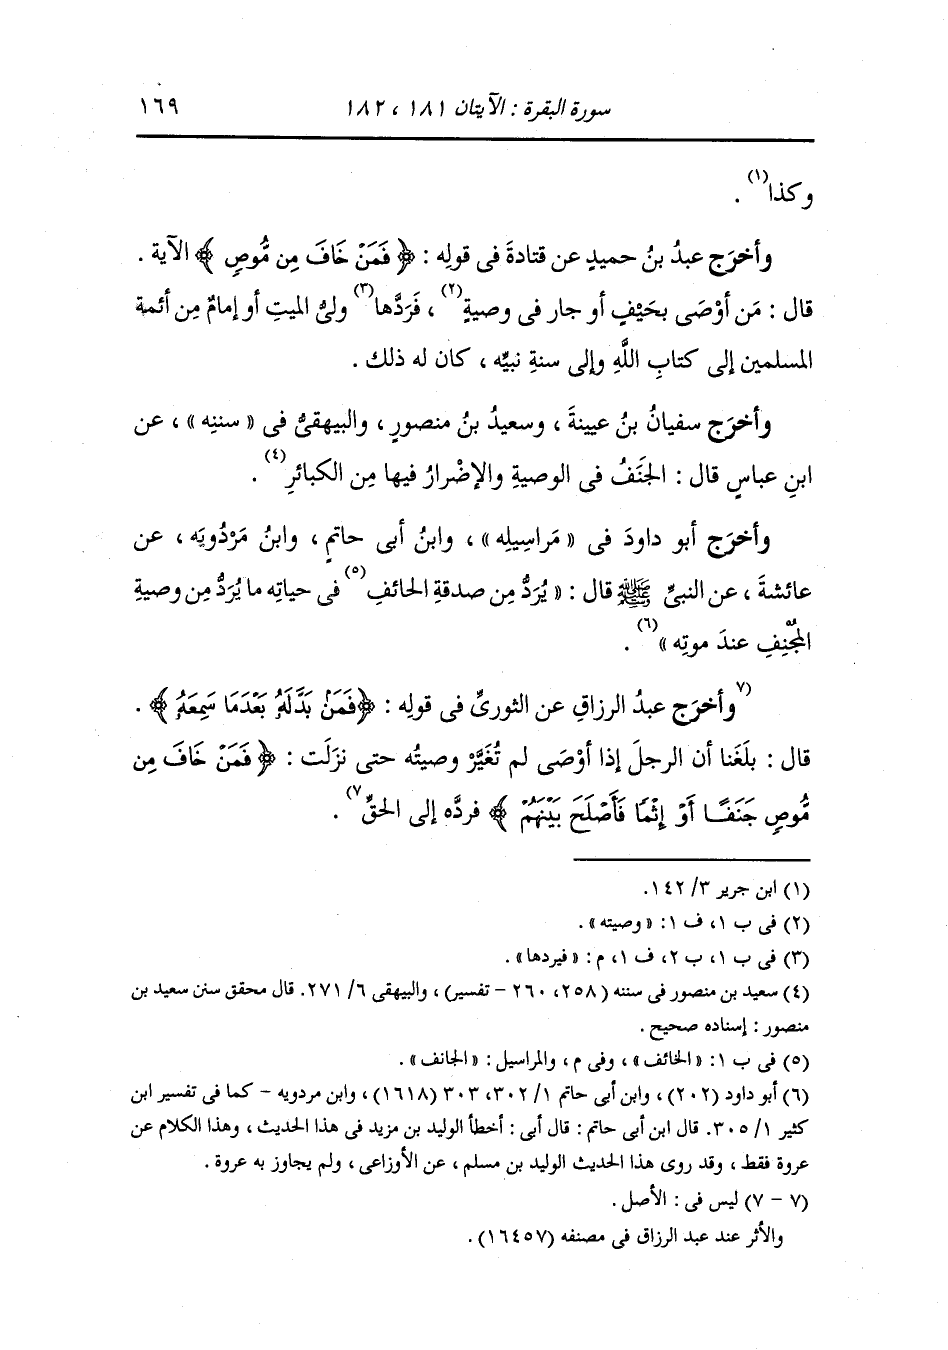 سورة البقرة : الآيتان ١٨١ ، ١٨٢ ١٦٩
وكذا(١) .
وأخرَج عبدُ بنُ حميدٍ عن قتادةَ فى قولِه : ﴿ فَمَنْ خَافَ مِن مُّوصٍ ﴾ الآية .
قال : مَن أوْصَى بحَيْفٍ أو جار فى وصيةٍ(٢) ، فَرَدَّها(٣) ولىُّ الميتِ أو إمامٌ مِن أئمة
المسلمين إلى كتابِ اللَّهِ وإلى سنةِ نبيِّه ، كان له ذلك .
وأخرَج سفيانُ بنُ عيينةَ ، وسعيدُ بنُ منصورٍ ، والبيهقىُّ فى « سننِه » ، عن
ابنِ عباسٍ قال : الجَنَفُ فى الوصيةِ والإضْرارُ فيها مِن الكبائرِ(٤) .
وأخرَج أبو داودَ فى « مَراسِيلِه » ، وابنُ أبى حاتمٍ ، وابنُ مَرْدُويَه ، عن
عائشةَ ، عن النبىِّ ﷺ قال : « يُرَدُّ مِن صدقةِ الحائفِ(٥) فى حياتِه ما يُرَدُّ مِن وصيةِ
المُجْنِفِ عندَ موتِه »(٦) .
(٧)وأخرَج عبدُ الرزاقِ عن الثورىِّ فى قولِه : ﴿فَمَنْ بَدَّلَهُ بَعْدَمَا سَمِعَهُ ﴾ .
قال : بلَغَنا أن الرجلَ إذا أوْصَى لم تُغَيَّرْ وصيتُه حتى نزَلَت : ﴿ فَمَنْ خَافَ مِن
مُّوصٍ جَنَفًا أَوْ إِثْمًا فَأَصْلَحَ بَيْنَهُمْ ﴾ فردَّه إلى الحقِّ(٧) .
(١) ابن جرير ٣/ ١٤٢.
(٢) فى ب ١، ف ١: « وصيته » .
(٣) فى ب ١، ب ٢، ف ١، م : « فيردها » .
(٤) سعيد بن منصور فى سننه (٢٥٨، ٢٦٠ - تفسير) ، والبيهقى ٦/ ٢٧١. قال محقق سنن سعيد بن
منصور : إسناده صحيح .
(٥) فى ب ١: « الخائف » ، وفى م ، والمراسيل : « الجانف » .
(٦) أبو داود (٢٠٢) ، وابن أبى حاتم ١/ ٣٠٢، ٣٠٣ (١٦١٨) ، وابن مردويه - كما فى تفسير ابن
كثير ١/ ٣٠٥. قال ابن أبى حاتم : قال أبى : أخطأ الوليد بن مزيد فى هذا الحديث ، وهذا الكلام عن
عروة فقط ، وقد روى هذا الحديث الوليد بن مسلم ، عن الأوزاعى ، ولم يجاوز به عروة .
(٧ - ٧) ليس فى : الأصل .
والأثر عند عبد الرزاق فى مصنفه (١٦٤٥٧) .